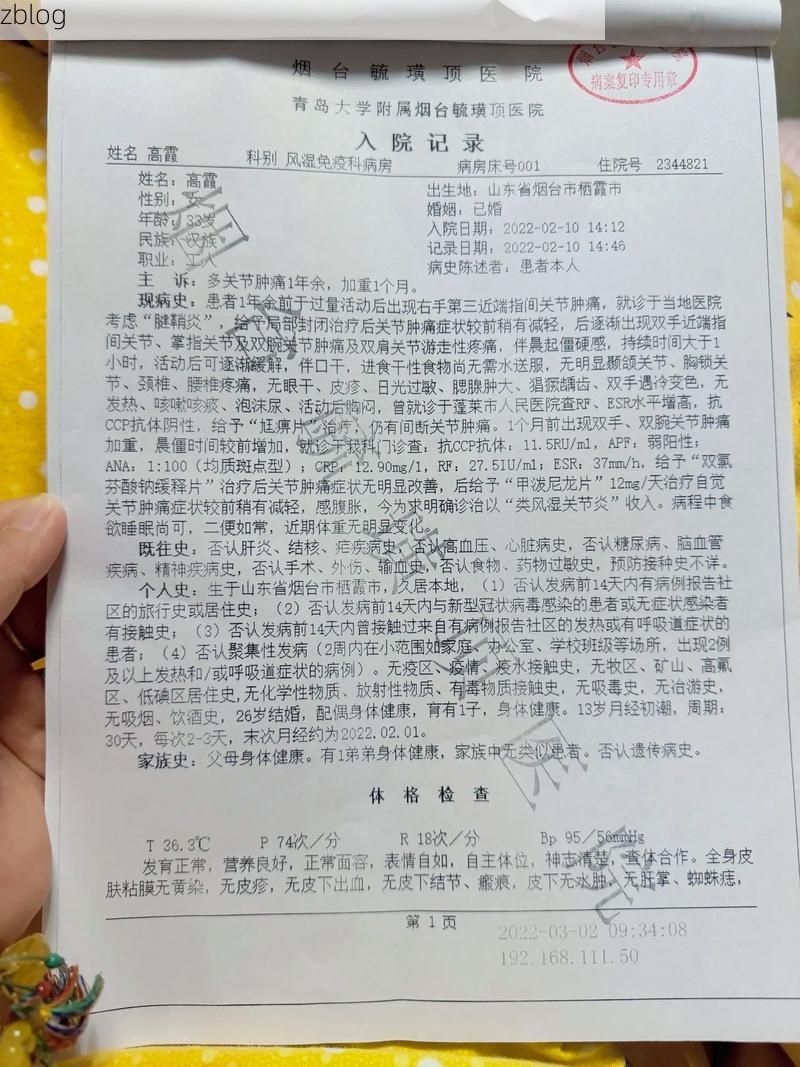 zblog
烟台毓璜顶医院
病案复印专用章
青岛大学附属烟台毓璜顶医院
入院记录
姓名 高霞 科别 风湿免疫科病房 病房床号001 住院号 2344821
姓名：高霞 出生地：山东省烟台市栖霞市
性别：女 婚姻：已婚
年龄：33岁 入院日期：2022-02-10 14:12
民族：汉族 记录日期：2022-02-10 14:46
职业：工人 病史陈述者：患者本人
主 诉：多关节肿痛1年余，加重1个月。
现病史：患者1年余前于过量活动后出现右手第三近端指间关节肿痛，就诊于当地医院
考虑“腱鞘炎”，给予局部封闭治疗后关节肿痛症状较前稍有减轻，后逐渐出现双手近端指
间关节、掌指关节及双腕关节肿痛及双肩关节游走性疼痛，伴晨起僵硬感，持续时间大于1
小时，活动后可逐渐缓解，伴口干，进食干性食物尚无需水送服，无明显颞颌关节、胸锁关
节、颈椎、腰椎疼痛，无眼干、皮疹、日光过敏、腮腺肿大、猖獗龋齿、双手遇冷变色，无
发热、咳嗽咳痰、泡沫尿、活动后胸闷，曾就诊于蓬莱市人民医院查RF、ESR水平增高，抗
CCP抗体阴性，给予“尪痹片”治疗，仍有间断关节肿痛。1个月前出现双手、双腕关节肿痛
加重，晨僵时间较前增加，就诊于我科门诊查：抗CCP抗体：11.5RU/ml，APF：弱阳性；
ANA：1:100（均质斑点型）；CRP：12.90mg/l，RF：27.5IU/ml；ESR：37mm/h，给予“双氯
芬酸钠缓释片”治疗后关节肿痛症状无明显改善，后给予“甲泼尼龙片”12mg/天治疗自觉
关节肿痛症状较前稍有减轻，感腹胀，今为求明确诊治以“类风湿关节炎”收入。病程中食
欲睡眠尚可，二便如常，近期体重无明显变化。
既往史：否认肝炎、结核、疟疾病史，否认高血压、心脏病史，否认糖尿病、脑血管
疾病、精神疾病史，否认手术、外伤、输血史，否认食物、药物过敏史，预防接种史不详。
个人史：生于山东省烟台市栖霞市，久居本地，（1）否认发病前14天内有病例报告社
区的旅行史或居住史；（2）否认发病前14天内与新型冠状病毒感染的患者或无症状感染者
有接触史；（3）否认发病前14天内曾接触过来自有病例报告社区的发热或有呼吸道症状的
患者；（4）否认聚集性发病（2周内在小范围如家庭、办公室、学校班级等场所，出现2例
及以上发热和/或呼吸道症状的病例）。无疫区、疫情、疫水接触史，无牧区、矿山、高氟
区、低碘区居住史，无化学性物质、放射性物质、有毒物质接触史，无吸毒史，无冶游史，
无吸烟、饮酒史，26岁结婚，配偶身体健康，育有1子，身体健康。13岁月经初潮，周期：
30天，每次2-3天，末次月经约为2022.02.01.
家族史：父母身体健康。有1弟弟身体健康，家族中无类似患者。否认遗传病史。
体格检查
T 36.3℃ P 74次／分 R 18次／分 Bp 95／56mmHg
发育正常，营养良好，正常面容，表情自如，自主体位，神志清楚，查体合作。全身皮
肤粘膜无黄染，无皮疹，无皮下出血，无皮下结节、瘢痕，皮下无水肿，无肝掌、蜘蛛痣，
第 1 页
2022-03-02 09:34:08
192.168.111.50